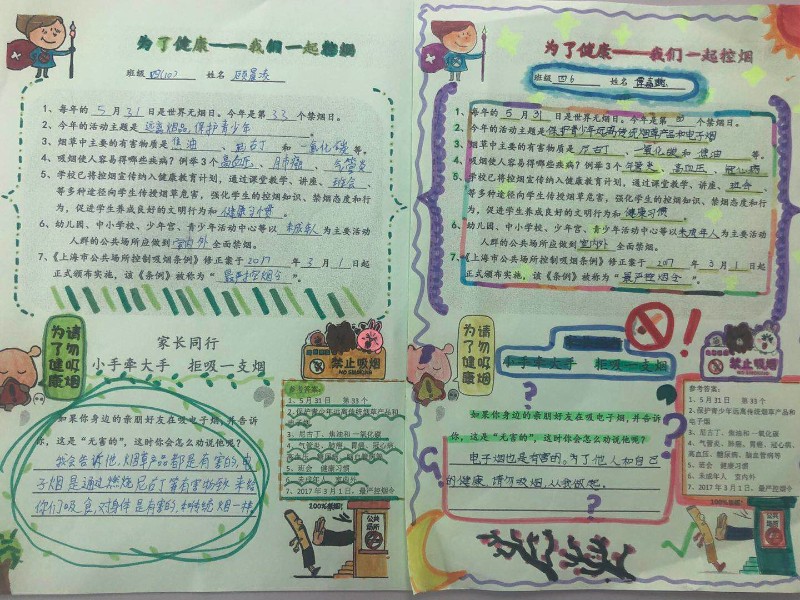 为了健康——我们一起控烟
班级 四(10) 姓名
1、每年的 5 月 31 日是世界无烟日。今年是第 33 个禁烟日。
2、今年的活动主题是 远离烟品,保护青少年 。
3、烟草中主要的有害物质是 焦油 、 尼古丁 和 一氧化碳 等。
4、吸烟使人容易得哪些疾病?例举3个 高血压 、 肺癌 、 气管炎
5、学校已将控烟宣传纳入健康教育计划,通过课堂教学、讲座、 班会 、
等多种途径向学生传授烟草危害,强化学生的控烟知识、禁烟态度和行
为,促进学生养成良好的文明行为和 健康习惯 。
6、幼儿园、中小学校、少年宫、青少年活动中心等以 未成年人 为主要活动
人群的公共场所应做到 室内外 全面禁烟。
7、《上海市公共场所控制吸烟条例》修正案于 2017 年 3 月 1 日起
正式颁布实施,该《条例》被称为“ 最严控烟令 ”。
请勿吸烟
为了健康
家长同行
小手牵大手 拒吸一支烟
禁止吸烟
NO SMOKING
如果你身边的亲朋好友在吸电子烟,并告诉
你,这是“无害的”,这时你会怎么劝说他呢?
我会告诉他,烟草产品都是有害的,电
子烟是通过燃烧尼古丁等有害物质 来给
你们吸食,对身体是有害的,和传统烟一样。
参考答案:
1、5月31日 第33个
2、保护青少年远离传统烟草产品和
电子烟
3、尼古丁、焦油和一氧化碳
4、气管炎、肺癌、胃癌、冠心病、
高血压、糖尿病、脑血管病等
5、班会 健康习惯
6、未成年人 室内外
7、2017年3月1日、最严控烟令
100%禁烟!
公共
场所
为了健康——我们一起控烟
班级 四6 姓名
1、每年的 5 月 31 日是世界无烟日。今年是第 个禁烟日。
2、今年的活动主题是 保护青少年远离传统烟草产品和电子烟
3、烟草中主要的有害物质是 尼古丁 、 一氧化碳 和 焦油 等。
4、吸烟使人容易得哪些疾病?例举3个 气管炎 、 高血压 、 冠心病
5、学校已将控烟宣传纳入健康教育计划,通过课堂教学、讲座、 班会 、
等多种途径向学生传授烟草危害,强化学生的控烟知识、禁烟态度和行
为,促进学生养成良好的文明行为和 健康习惯 。
6、幼儿园、中小学校、少年宫、青少年活动中心等以 未成年人 为主要活动
人群的公共场所应做到 室内外 全面禁烟。
7、《上海市公共场所控制吸烟条例》修正案于 2017 年 3 月 1 日起
正式颁布实施,该《条例》被称为“ 最严控烟令 ”。
请勿吸烟
为了健康
小手牵大手 拒吸一支烟
禁止吸烟
NO SMOKING
如果你身边的亲朋好友在吸电子烟,并告诉
你,这是“无害的”,这时你会怎么劝说他呢?
电子烟也是有害的。为了他人和自己
的健康,请勿吸烟,从我做起。
参考答案:
1、5月31日 第33个
2、保护青少年远离传统烟草产品和
电子烟
3、尼古丁、焦油和一氧化碳
4、气管炎、肺癌、胃癌、冠心病、
高血压、糖尿病、脑血管病等
5、班会 健康习惯
6、未成年人 室内外
7、2017年3月1日、最严控烟令
100%禁烟!
公共
场所